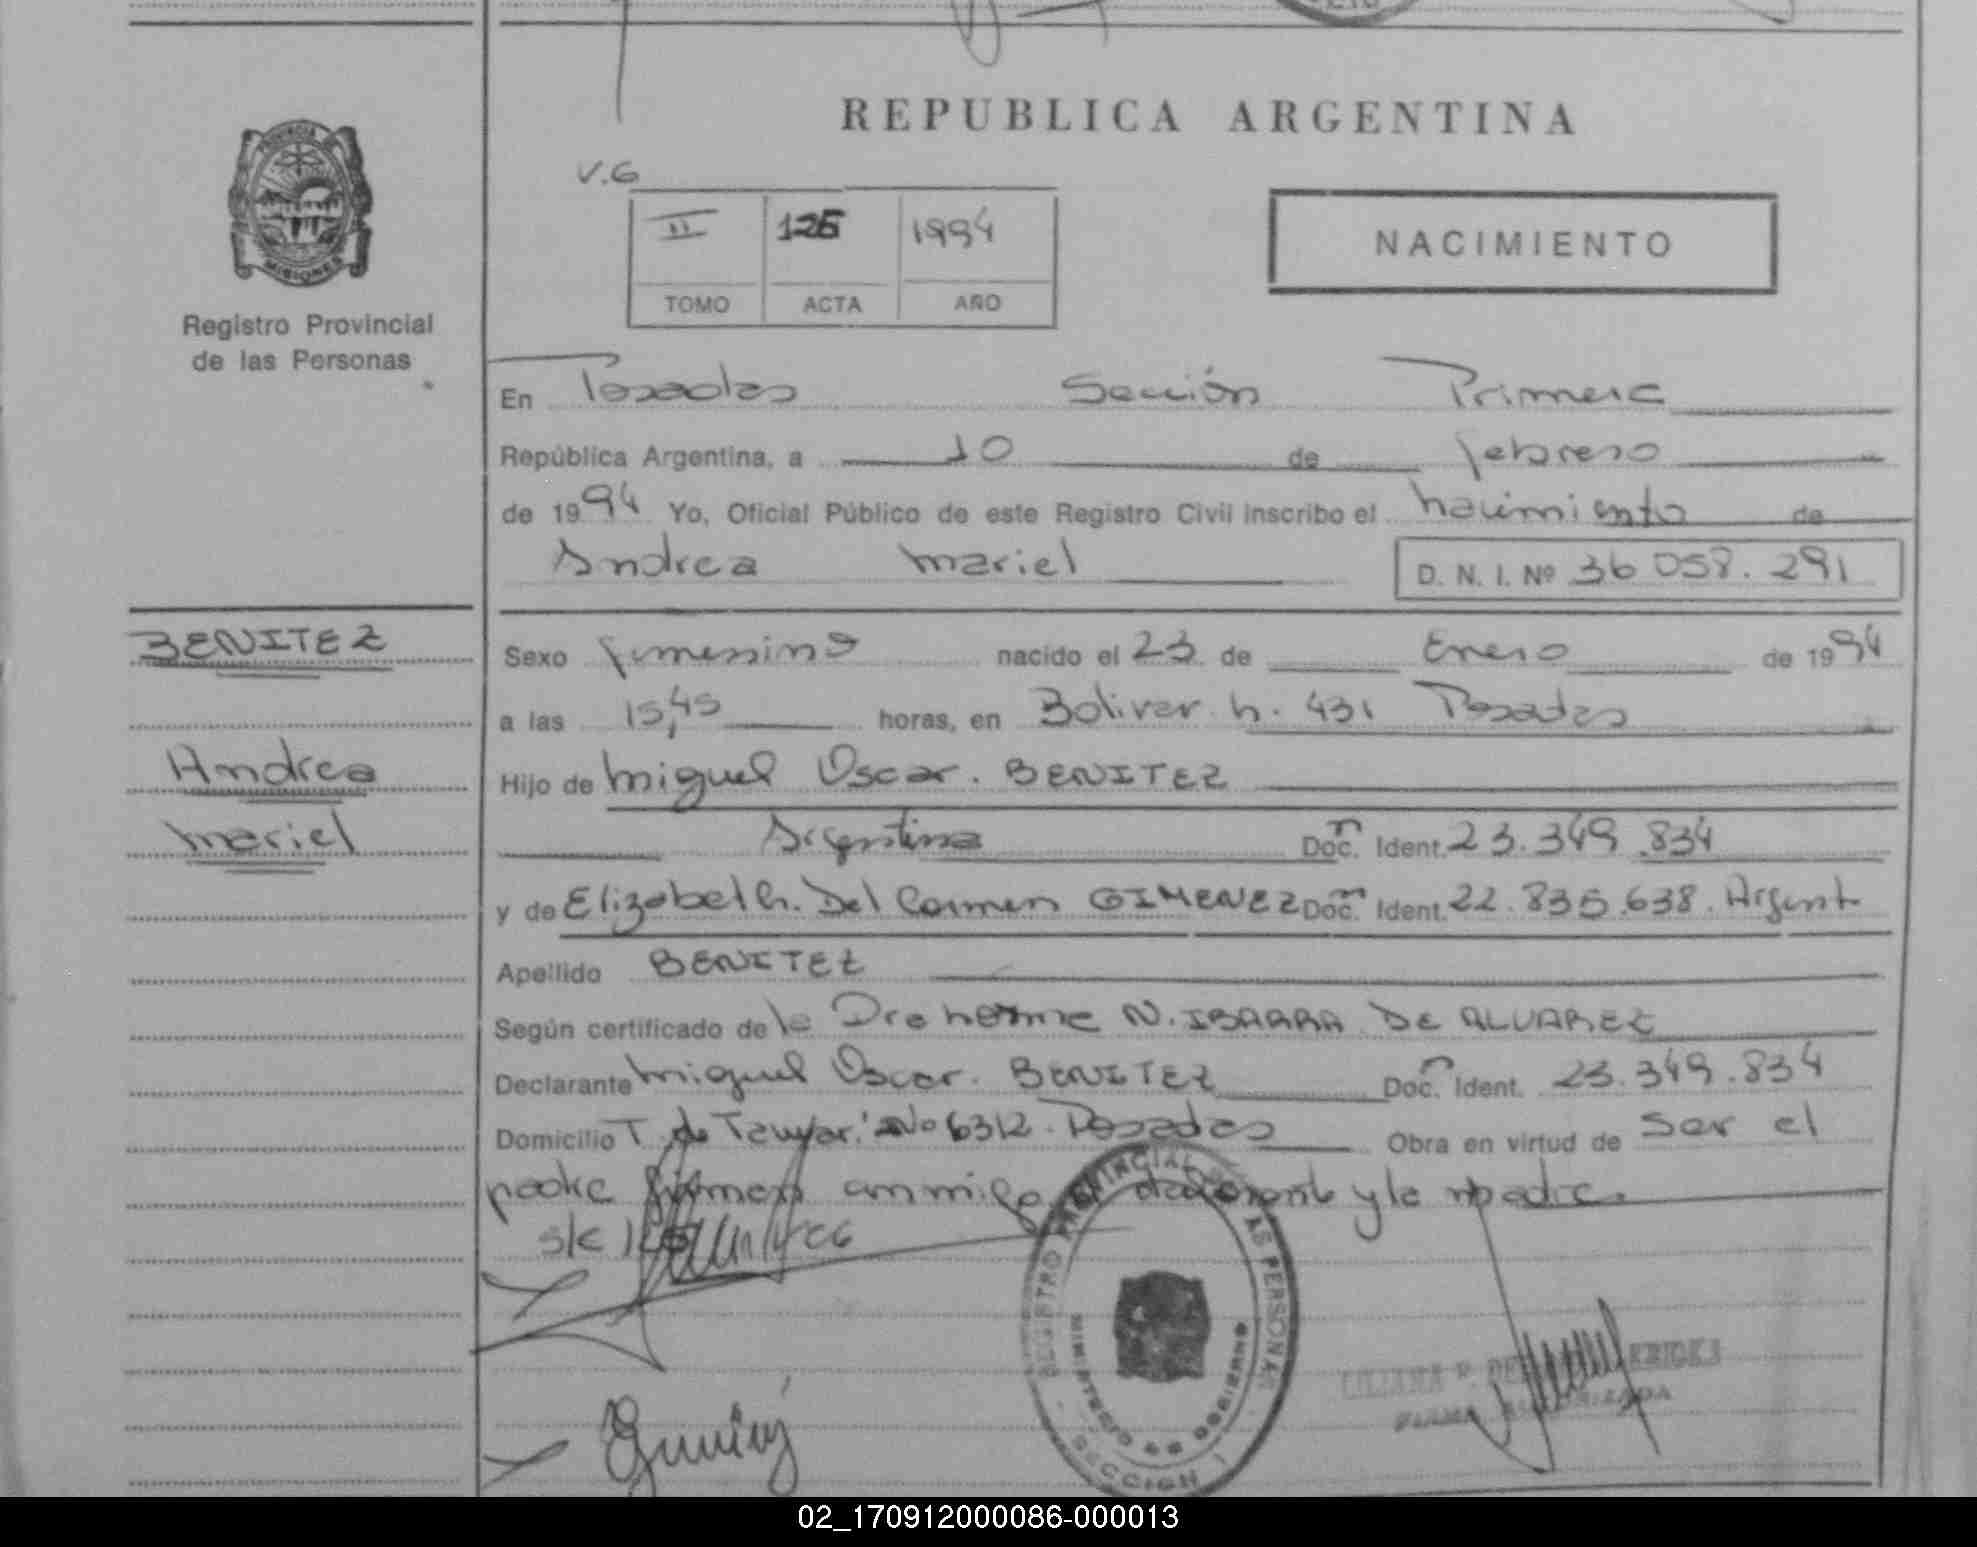 REPUBLICA ARGENTINA
V.G
II 126 1994
TOMO ACTA AÑO
NACIMIENTO
PROVINCIA
MISIONES
Registro Provincial
de las Personas
En Posadas Sección Primera
República Argentina, a 10 de febrero
de 1994 Yo, Oficial Público de este Registro Civil inscribo el nacimiento de
Andrea Mariel D. N. I. Nº 36 058.291
BENITEZ
Andrea
Mariel
Sexo femenino nacido el 23 de Enero de 1994
a las 15,45 horas, en Bolivar n. 431 Posadas
Hijo de Miguel Oscar. BENITEZ
Argentina Doc. Ident. 23.349.834
y de Elizabeth. Del Carmen GIMENEZ Doc. Ident. 22.835.638. Argent
Apellido BENITEZ
Según certificado de la Dra Norma N. IBARRA DE ALVAREZ
Declarante Miguel Oscar. BENITEZ Doc. Ident. 23.349.834
Domicilio T. de No 6312. Posadas Obra en virtud de Ser el
padre firman conmigo declarante y la madre.
REGISTRO PROVINCIAL DE LAS PERSONAS
MINISTERIO DE GOBIERNO
SECCION 1
LILIANA P.
FIRMA AUTORIZADA
02_170912000086-000013